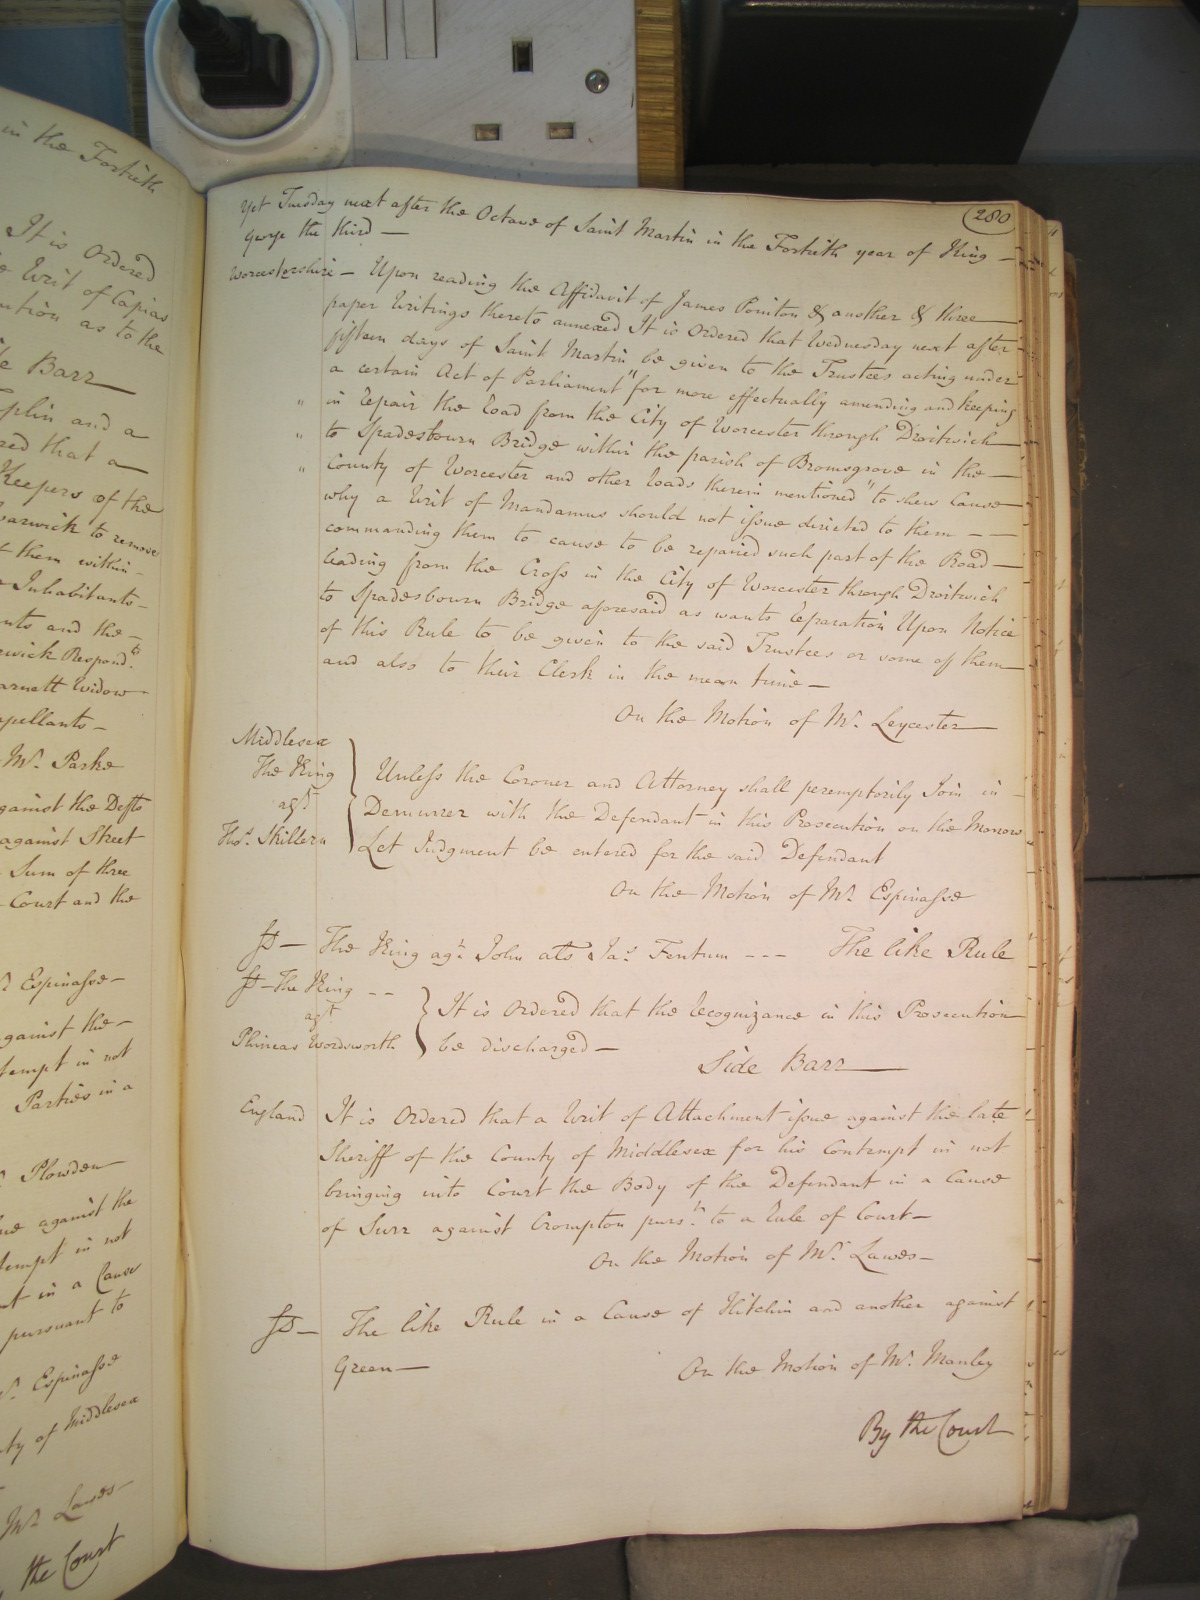 in the Fortieth
It is Ordered
Writ of Capias
as to the
Barr
and a
that a
Keepers of the
Warwick to remove
them within
Inhabitants
and the
Respond.ts
Widow
Mr. Parke
against the Defts
against Street
Sum of three
Court and the
Espinasse
against the
in not
Parties in a
Plowden
against the
in not
in a Cause
pursuant to
Espinasse
of Middlesex
Mr. Lawes
the Court
280
Yet Tuesday next after the Octave of Saint Martin in the Fortieth year of King
George the third —
Worcestershire — Upon reading the Affidavit of James Pointon & another & three
paper Writings thereto annexed It is Ordered that Wednesday next after
fifteen days of Saint Martin be given to the Trustees acting under
a certain Act of Parliament "for more effectually amending and keeping
" in Repair the Road from the City of Worcester through Droitwich
" to Spadesbourn Bridge within the parish of Bromsgrove in the
" County of Worcester and other Roads therein mentioned" to shew Cause
why a Writ of Mandamus should not issue directed to them — —
commanding them to cause to be repaired such part of the Road —
leading from the Cross in the City of Worcester through Droitwich
to Spadesbourn Bridge aforesaid as wants Reparation Upon Notice
of this Rule to be given to the said Trustees or some of them
and also to their Clerk in the mean time —
On the Motion of Mr. Leycester
Middlesex
The King
agst
Thos. Skillern
Unless the Coroner and Attorney shall peremptorily Join in
Demurrer with the Defendant in this Prosecution on the Morrow
Let Judgment be entered for the said Defendant
On the Motion of Mr. Espinasse
Sd — The King agt. John ats Jas. Fentum - - - The like Rule
Sd — The King - -
agst
Phineas Wordsworth
It is Ordered that the Recognizance in this Prosecution
be discharged —
Side Barr
England It is Ordered that a Writ of Attachment issue against the late
Sheriff of the County of Middlesex for his Contempt in not
bringing into Court the Body of the Defendant in a Cause
of Surr against Crompton purst. to a Rule of Court —
On the Motion of Mr. Lawes —
Sd — The like Rule in a Cause of Hitchin and another against
Green —
On the Motion of Mr. Manley
By the Court